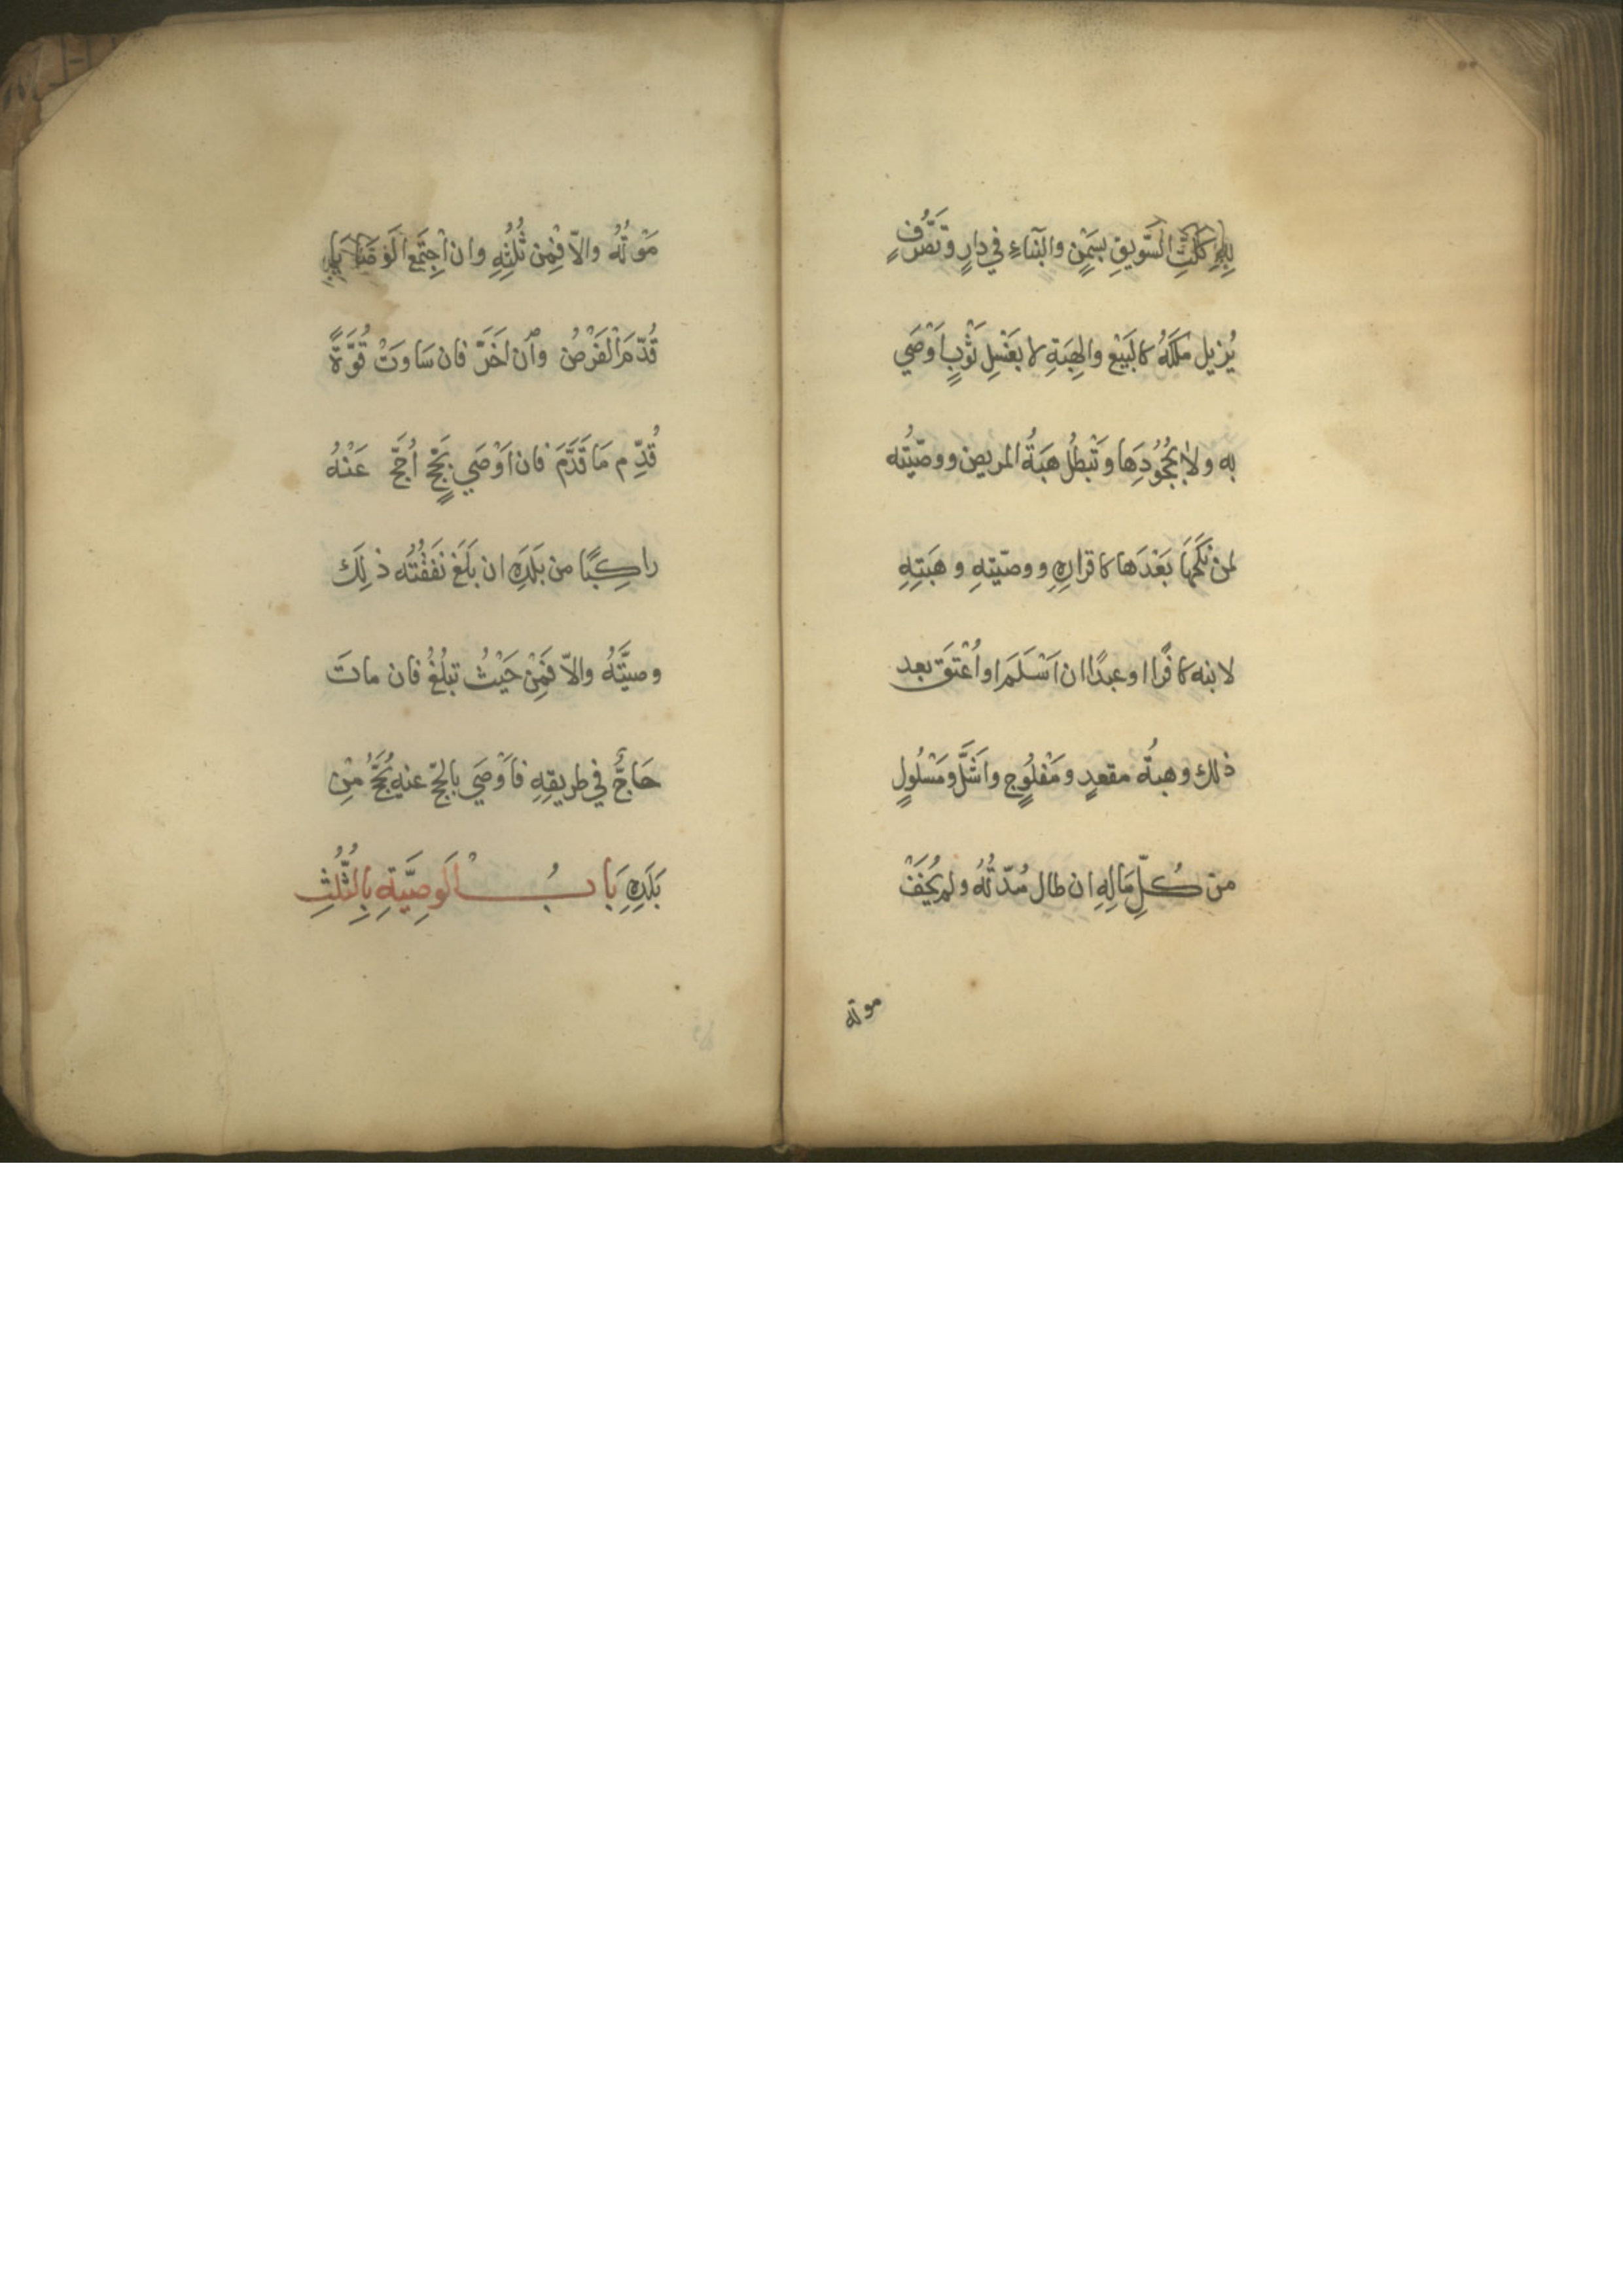 بِهِ كَلَتِّ السَّوِيقِ بِسَمْنٍ والبِنَاءِ في دارٍ وتَصَرُّفٍ
يُزيل مِلكَهُ كالبَيْعِ والهِبَةِ لا بغَسْلِ ثَوْبٍ اَوْصَي
به ولا بجُحُودِهَا وتَبْطُلُ هِبَةُ المريض ووصيّتُه
لمن نكَحَهَا بَعْدَها كاقرارِهِ ووصيّتِهِ وهِبَتِهِ
لابنه كافرًا او عبدًا ان اَسْلَمَ او اُعْتِقَ بعد
ذلك وهبةُ مقعدٍ ومَفْلُوجٍ واَشَلَّ ومَسْلُولٍ
من كُلِّ مَالِهِ ان طال مُدّتُهُ ولم يُخَفْ
موته
مَوْتُهُ والاّ فمِن ثُلُثِهِ وان اجتَمَع الوَصَايَا
قُدّمَ الْفَرْضُ وان اَخَّرَ فان سَاوَتْ قُوَّةً
قُدِّم مَا قَدَّمَ فان اَوْصَي بِحَجٍّ اُحِجَّ عَنْهُ
راكِبًا من بَلَدِهِ ان بَلَغَ نَفَقَتُه ذلِكَ
وصيَّتَهُ والاّ فَمِنْ حَيْثُ تبلُغُ فان ماتَ
حَاجٌّ في طريقِهِ فاَوْصَي بالحجّ عنه يُحَجُّ مِن
بَلَدِهِ بَابُ الْوَصِيَّةِ بِالثُّلُثِ